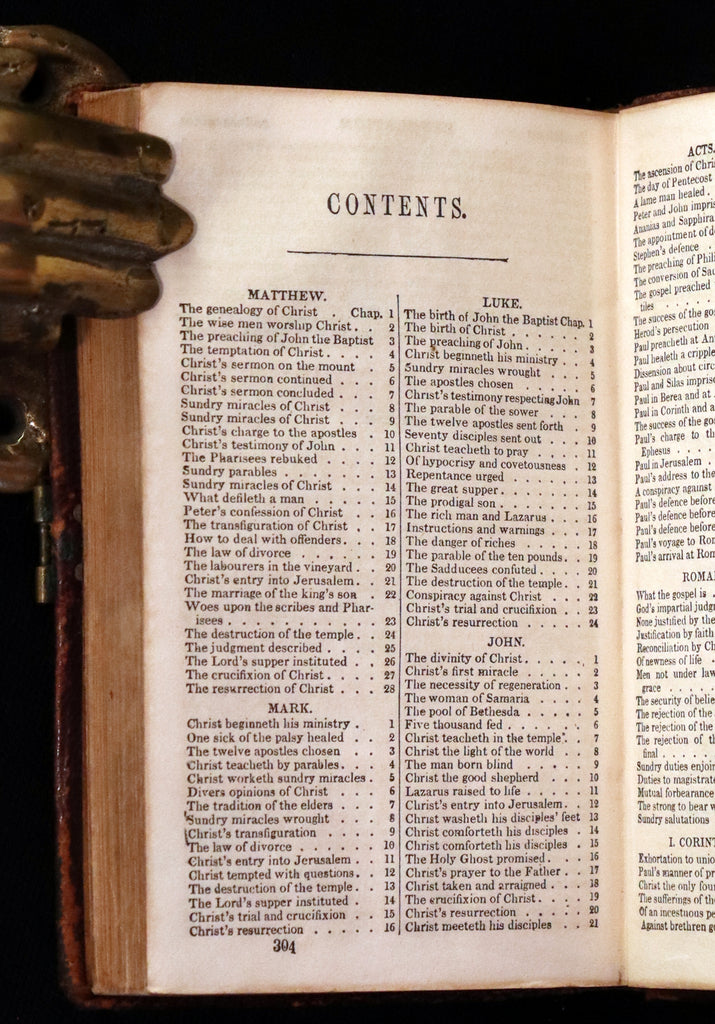 CONTENTS.
MATTHEW.
The genealogy of Christ . Chap. 1
The wise men worship Christ . . 2
The preaching of John the Baptist 3
The temptation of Christ . . . . 4
Christ's sermon on the mount . 5
Christ's sermon continued . . . 6
Christ's sermon concluded . . . 7
Sundry miracles of Christ . . . 8
Sundry miracles of Christ . . . 9
Christ's charge to the apostles . 10
Christ's testimony of John . . . 11
The Pharisees rebuked . . . . 12
Sundry parables . . . . . . . 13
Sundry miracles of Christ . . . 14
What defileth a man . . . . . 15
Peter's confession of Christ . . 16
The transfiguration of Christ . . 17
How to deal with offenders . . . 18
The law of divorce . . . . . . 19
The labourers in the vineyard . 20
Christ's entry into Jerusalem . . 21
The marriage of the king's son . 22
Woes upon the scribes and Phar-
isees . . . . . . . . . . . 23
The destruction of the temple . . 24
The judgment described . . . . 25
The Lord's supper instituted . . 26
The crucifixion of Christ . . . . 27
The resurrection of Christ . . . 28
MARK.
Christ beginneth his ministry . 1
One sick of the palsy healed . . 2
The twelve apostles chosen . . 3
Christ teacheth by parables . . . 4
Christ worketh sundry miracles . 5
Divers opinions of Christ . . . 6
The tradition of the elders . . . 7
Sundry miracles wrought . . . 8
Christ's transfiguration . . . . 9
The law of divorce . . . . . . 10
Christ's entry into Jerusalem . . 11
Christ tempted with questions . . 12
The destruction of the temple . . 13
The Lord's supper instituted . . 14
Christ's trial and crucifixion . . 15
Christ's resurrection . . . . . 16
304
LUKE.
The birth of John the Baptist Chap. 1
The birth of Christ . . . . . . 2
The preaching of John . . . . . 3
Christ beginneth his ministry . . 4
Sundry miracles wrought . . . 5
The apostles chosen . . . . . 6
Christ's testimony respecting John 7
The parable of the sower . . . 8
The twelve apostles sent forth . 9
Seventy disciples sent out . . . 10
Christ teacheth to pray . . . . 11
Of hypocrisy and covetousness . 12
Repentance urged . . . . . . 13
The great supper . . . . . . . 14
The prodigal son . . . . . . . 15
The rich man and Lazarus . . . 16
Instructions and warnings . . . 17
The danger of riches . . . . . 18
The parable of the ten pounds . . 19
The Sadducees confuted . . . . 20
The destruction of the temple . . 21
Conspiracy against Christ . . . 22
Christ's trial and crucifixion . . 23
Christ's resurrection . . . . . 24
JOHN.
The divinity of Christ . . . . . 1
Christ's first miracle . . . . . 2
The necessity of regeneration . . 3
The woman of Samaria . . . . 4
The pool of Bethesda . . . . . 5
Five thousand fed . . . . . . 6
Christ teacheth in the temple . . 7
Christ the light of the world . . 8
The man born blind . . . . . 9
Christ the good shepherd . . . 10
Lazarus raised to life . . . . . 11
Christ's entry into Jerusalem . . 12
Christ washeth his disciples' feet 13
Christ comforteth his disciples . 14
Christ comforteth his disciples . 15
The Holy Ghost promised . . . 16
Christ's prayer to the Father . . 17
Christ taken and arraigned . . . 18
The crucifixion of Christ . . . . 19
Christ's resurrection . . . . . 20
Christ meeteth his disciples . . 21
ACTS.
The ascension of
The day of Pentecost
A lame man healed .
Peter and John
Ananias and Sapphira
The appointment of
Stephen's defence .
The preaching of
The conversion of
The gospel preached
tiles . . . . . .
The success of the
Herod's persecution
Paul preacheth at
Paul healeth a
Dissension about
Paul and Silas
Paul in Berea and at
Paul in Corinth and
The success of the
Paul's charge to
Ephesus . . . .
Paul in Jerusalem .
Paul's address to the
A conspiracy against
Paul's defence before
Paul's defence before
Paul's defence before
Paul's voyage to
Paul's arrival at
What the gospel is .
God's impartial
None justified by the
Justification by faith
Reconciliation by
Of newness of life .
Men not under law
grace . . . . .
The security of
The rejection of the
The rejection of the
The rejection of
final . . . . . .
Sundry duties
Duties to
Mutual forbearance
The strong to bear
Sundry salutations
Exhortation to
Paul's manner of
Christ the only
The sufferings of
Of an incestuous
Against brethren